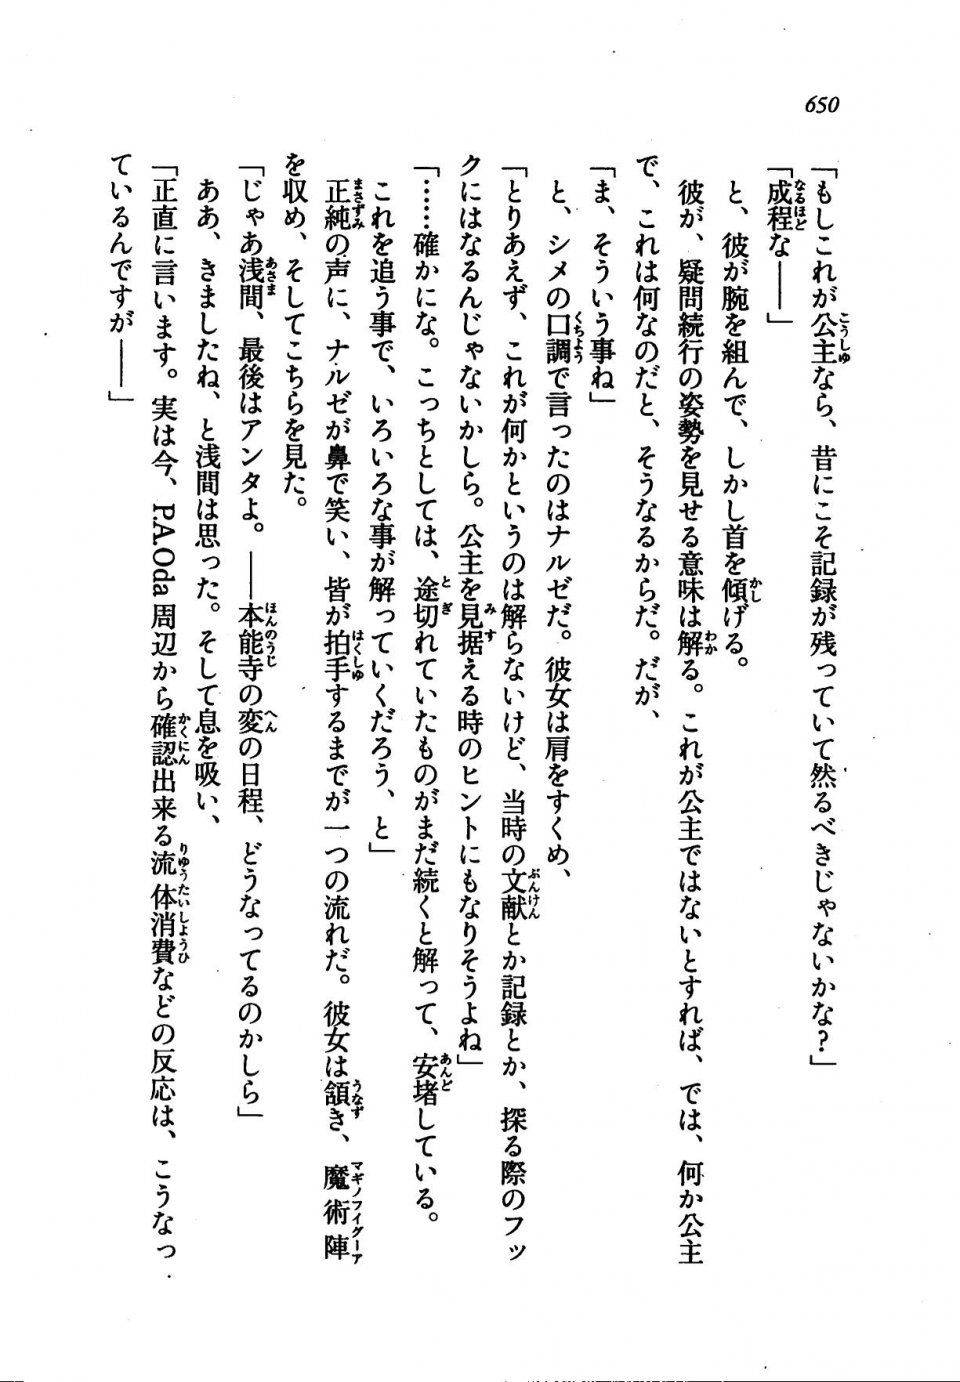 650
「もしこれが公主なら、昔にこそ記録が残っていて然るべきじゃないかな?」
「成程な――」
と、彼が腕を組んで、しかし首を傾げる。
彼が、疑問続行の姿勢を見せる意味は解る。これが公主ではないとすれば、では、何か公主
で、これは何なのだと、そうなるからだ。だが、
「ま、そういう事ね」
と、シメの口調で言ったのはナルゼだ。彼女は肩をすくめ、
「とりあえず、これが何かというのは解らないけど、当時の文献とか記録とか、探る際のフッ
クにはなるんじゃないかしら。公主を見据える時のヒントにもなりそうよね」
「……確かにな。こっちとしては、途切れていたものがまだ続くと解って、安堵している。
これを追う事で、いろいろな事が解っていくだろう、と」
正純の声に、ナルゼが鼻で笑い、皆が拍手するまでが一つの流れだ。彼女は頷き、魔術陣
を収め、そしてこちらを見た。
「じゃあ浅間、最後はアンタよ。――本能寺の変の日程、どうなってるのかしら」
ああ、きましたね、と浅間は思った。そして息を吸い、
「正直に言います。実は今、P.A.Oda周辺から確認出来る流体消費などの反応は、こうなっ
ているんですが――」